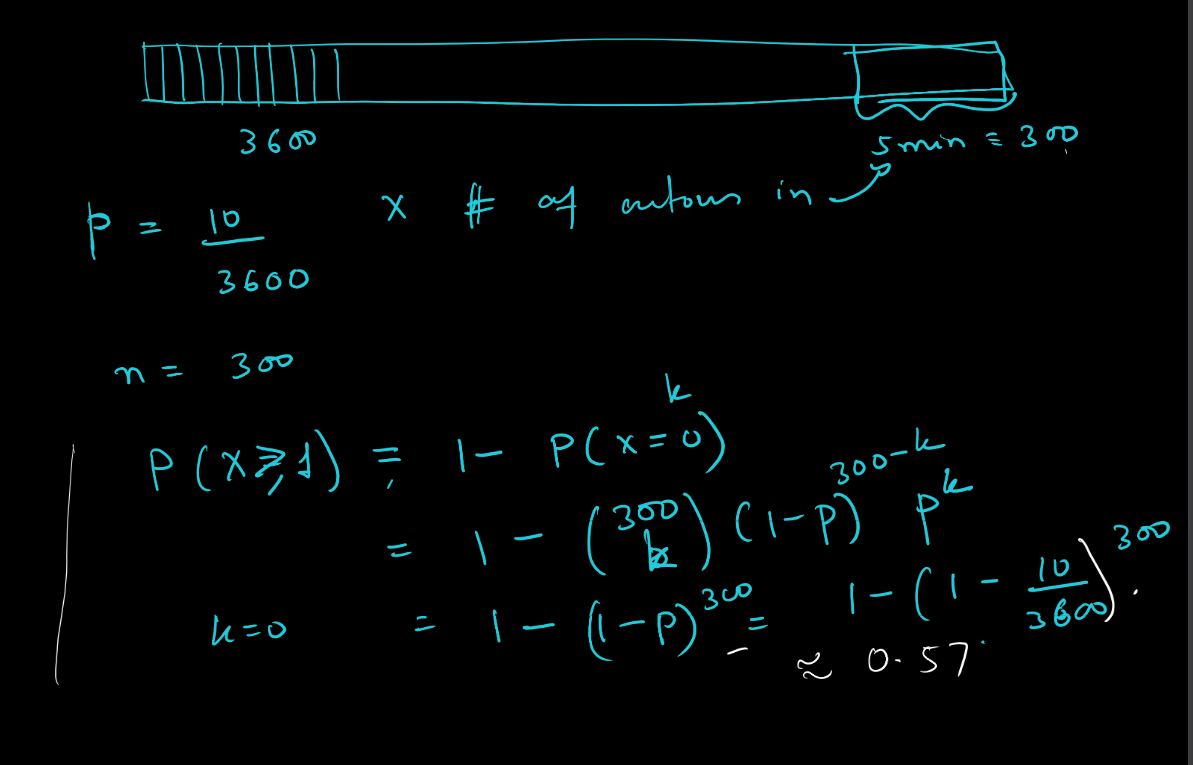 3600
5 min = 300
p = 10/3600
X # of autous in
n = 300
k
P(X ≥ 1) = 1 - P(X = 0)
= 1 - (300 k) (1-p)^300-k p^k
k=0 = 1 - (1-p)^300 = 1 - (1 - 10/3600)^300.
≈ 0.57.